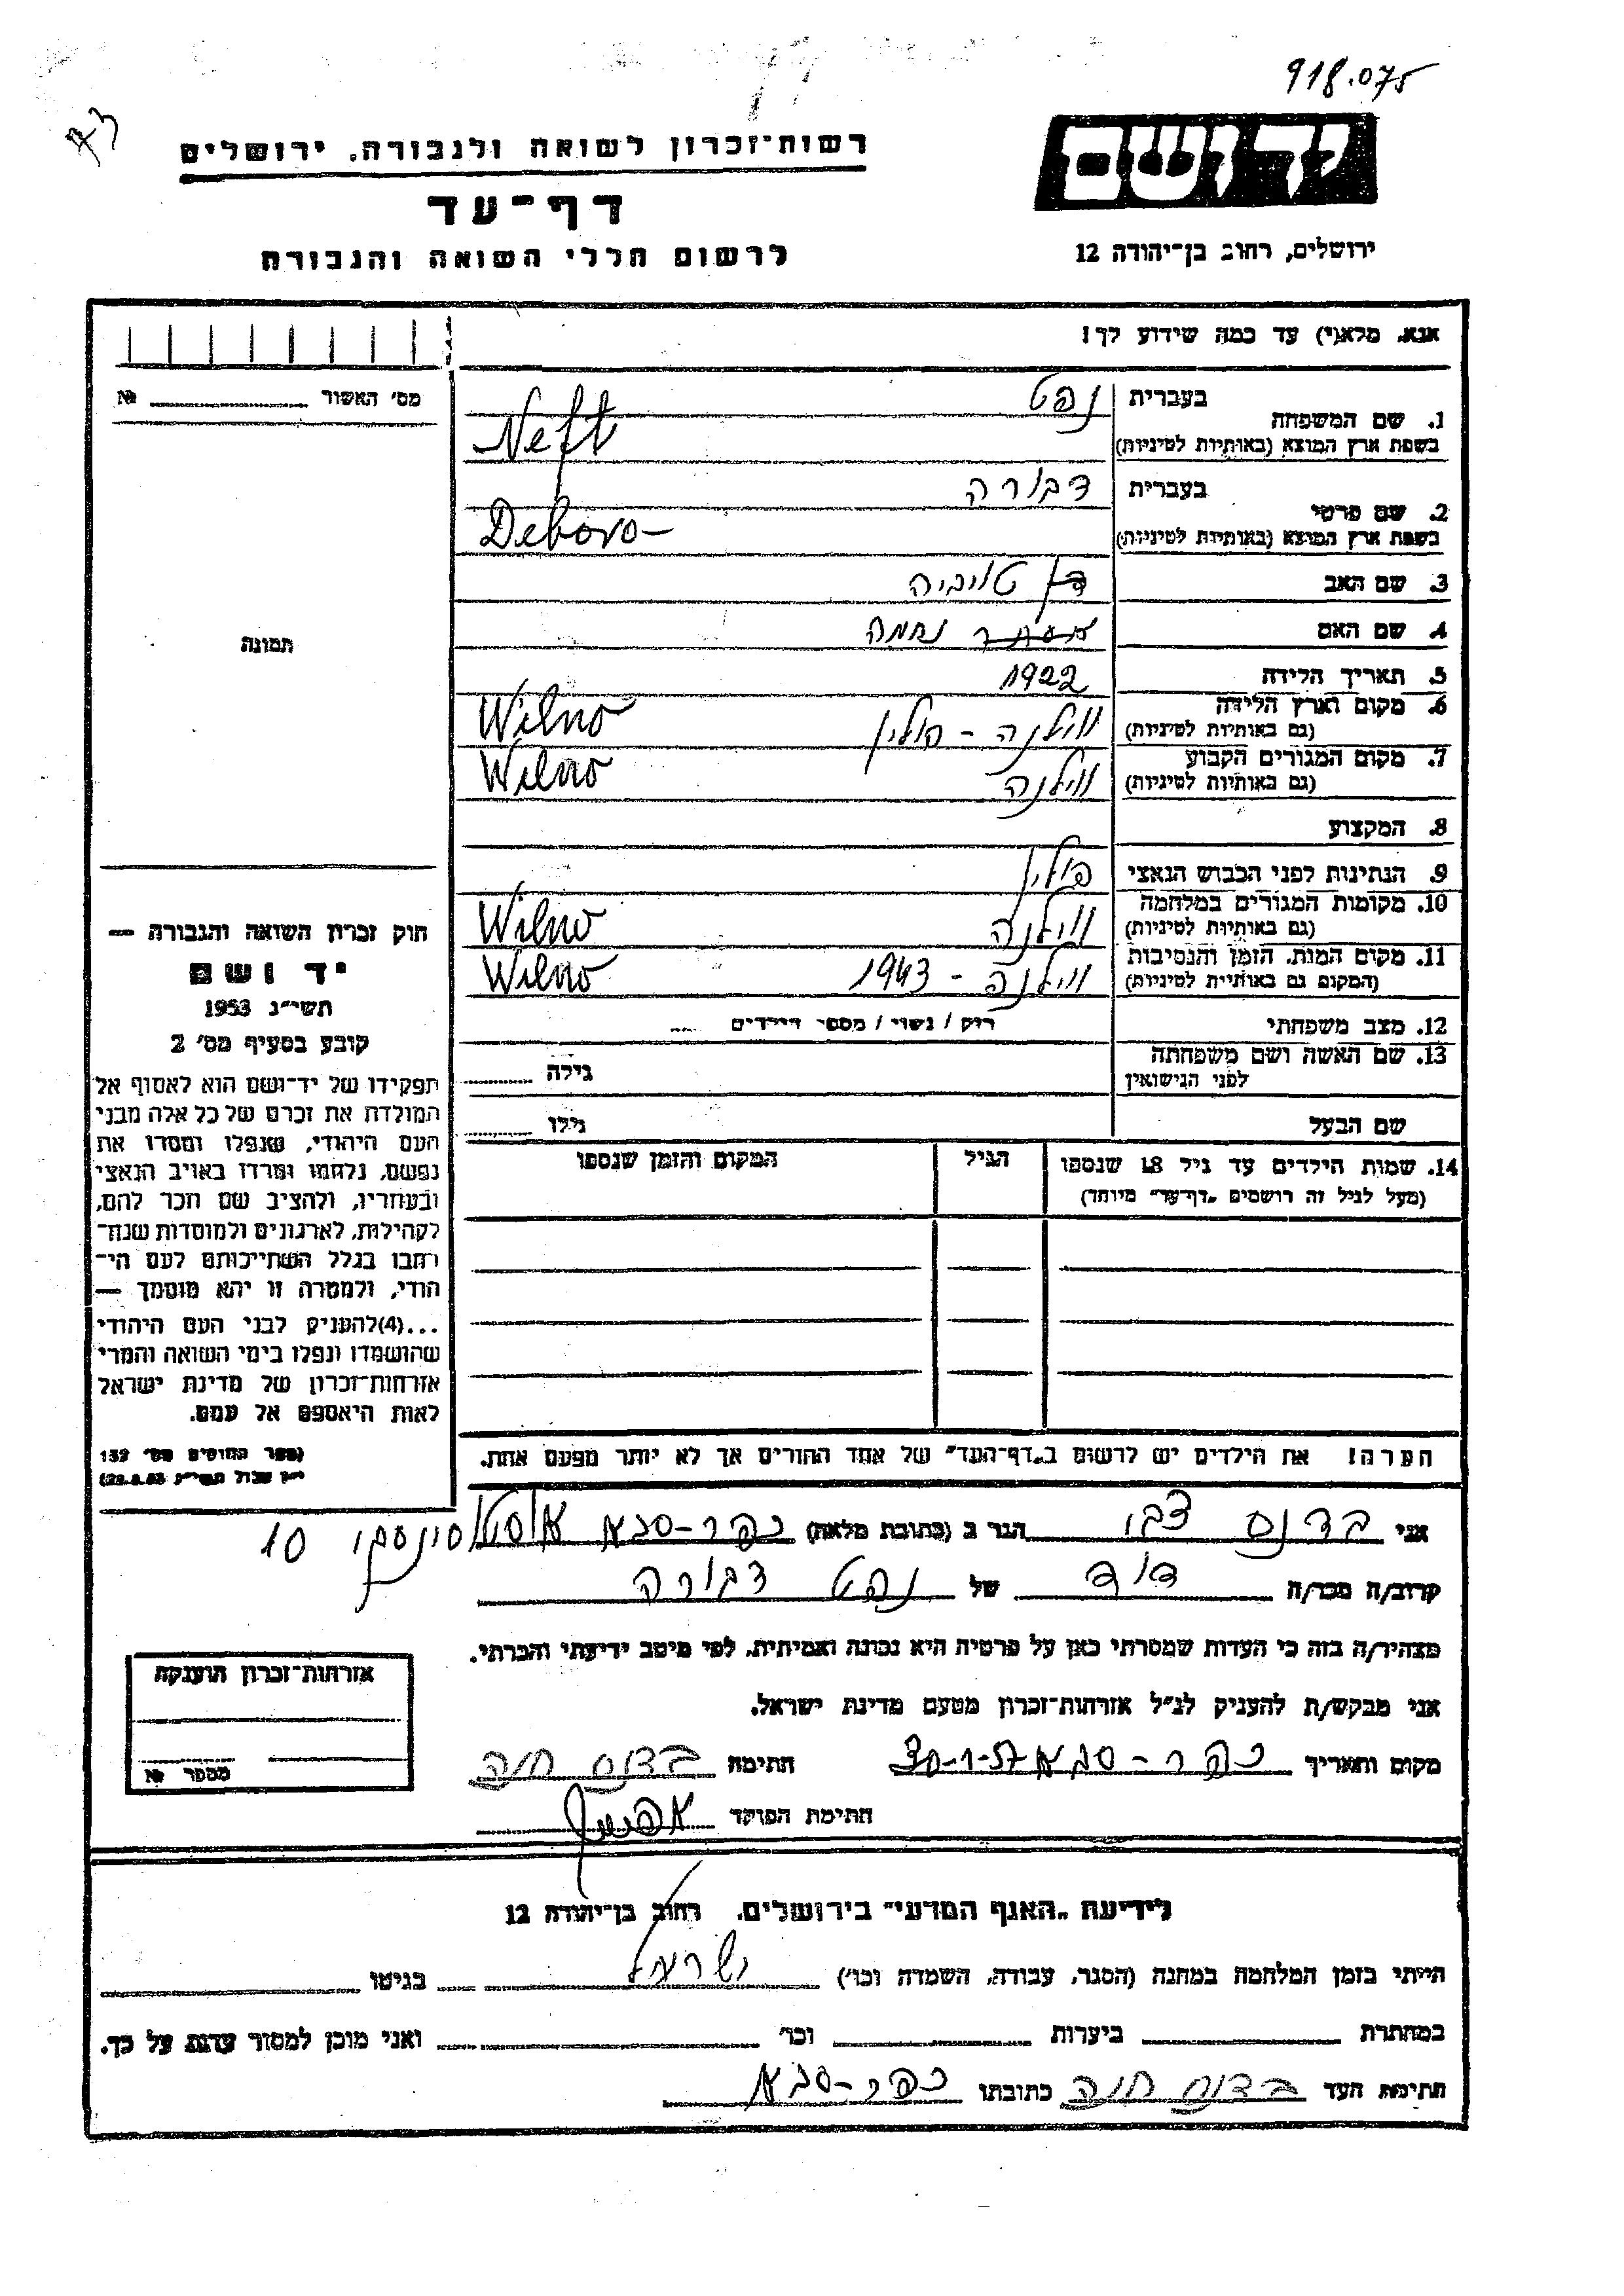 918.075
רשות־זכרון לשואה ולגבורה. ירושלים
דף־עד
לרשום חללי השואה והגבורה
יד ושם
ירושלים, רחוב בן־יהודה 12
אנא, מלא(י) עד כמה שידוע לך!
מס׳ האשור №
תמונה
1. שם המשפחה בעברית נפט
בשפת ארץ המוצא (באותיות לטיניות) Neft
2. שם פרטי בעברית דבורה
בשפת ארץ המוצא (באותיות לטיניות) Deboro
3. שם האב טוביה
4. שם האם נחמה
5. תאריך הלידה 1922
6. מקום וארץ הלידה (גם באותיות לטיניות) ווילנה - פולין Wilno
7. מקום המגורים הקבוע (גם באותיות לטיניות) ווילנה Wilno
8. המקצוע
9. הנתינות לפני הכבוש הנאצי פולין
10. מקומות המגורים במלחמה (גם באותיות לטיניות) ווילנה Wilno
11. מקום המות, הזמן והנסיבות (המקום גם באותיות לטיניות) ווילנה - 1943 Wilno
12. מצב משפחתי רוק / נשוי / מספר הילדים
13. שם האשה ושם משפחתה לפני הנישואין גילה
שם הבעל גילו
14. שמות הילדים עד גיל 18 שנספו הגיל המקום והזמן שנספו
(מעל לגיל זה רושמים „דף־עד" מיוחד)
הערה! את הילדים יש לרשום ב„דף־העד" של אחד ההורים אך לא יותר מפעם אחת.
חוק זכרון השואה והגבורה —
יד ושם
תשי״ג 1953
קובע בסעיף מס׳ 2
תפקידו של יד־ושם הוא לאסוף אל
המולדת את זכרם של כל אלה מבני
העם היהודי, שנפלו ומסרו את
נפשם, נלחמו ומרדו באויב הנאצי
ובעוזריו, ולהציב שם וזכר להם,
לקהילות, לארגונים ולמוסדות שנח־
רבו בגלל השתייכותם לעם הי־
הודי, ולמטרה זו יהא מוסמך —
...(4)להעניק לבני העם היהודי
שהושמדו ונפלו בימי השואה והמרי
אזרחות־זכרון של מדינת ישראל
לאות היאספם אל עמם.
(ספר החוקים מס׳ 132
אני צבי הגר ב (כתובת מלאה) כפר-סבא 10
קרוב/ה מכר/ה דוד של נפט דבורה
מצהיר/ה בזה כי העדות שמסרתי כאן על פרטיה היא נכונה ואמיתית, לפי מיטב ידיעתי והכרתי.
אני מבקש/ת להעניק לנ״ל אזרחות־זכרון מטעם מדינת ישראל.
מקום ותאריך כפר-סבא 30-1-57 חתימה חנה
חתימת הפוקד
אזרחות־זכרון הוענקה
מספר №
לידיעת „האגף המדעי" בירושלים. רחוב בן־יהודה 12
הייתי בזמן המלחמה במחנה (הסגר, עבודה, השמדה וכו׳) ישראל בגיטו
במחתרת ביערות וכו׳ ואני מוכן למסור עדות על כך.
חתימת העד חנה כתובתו כפר-סבא